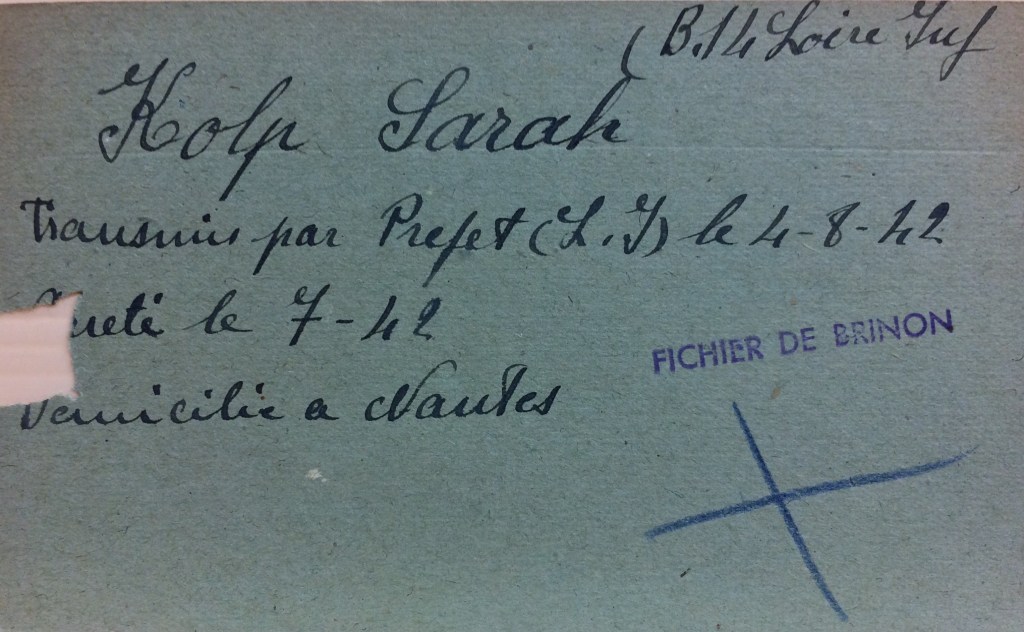 ( B.14 Loire Inf
Kolp Sarah
Transmis par Prefet (L.I) le 4-8-42
le 7-42
FICHIER DE BRINON
Domicilié a Nantes